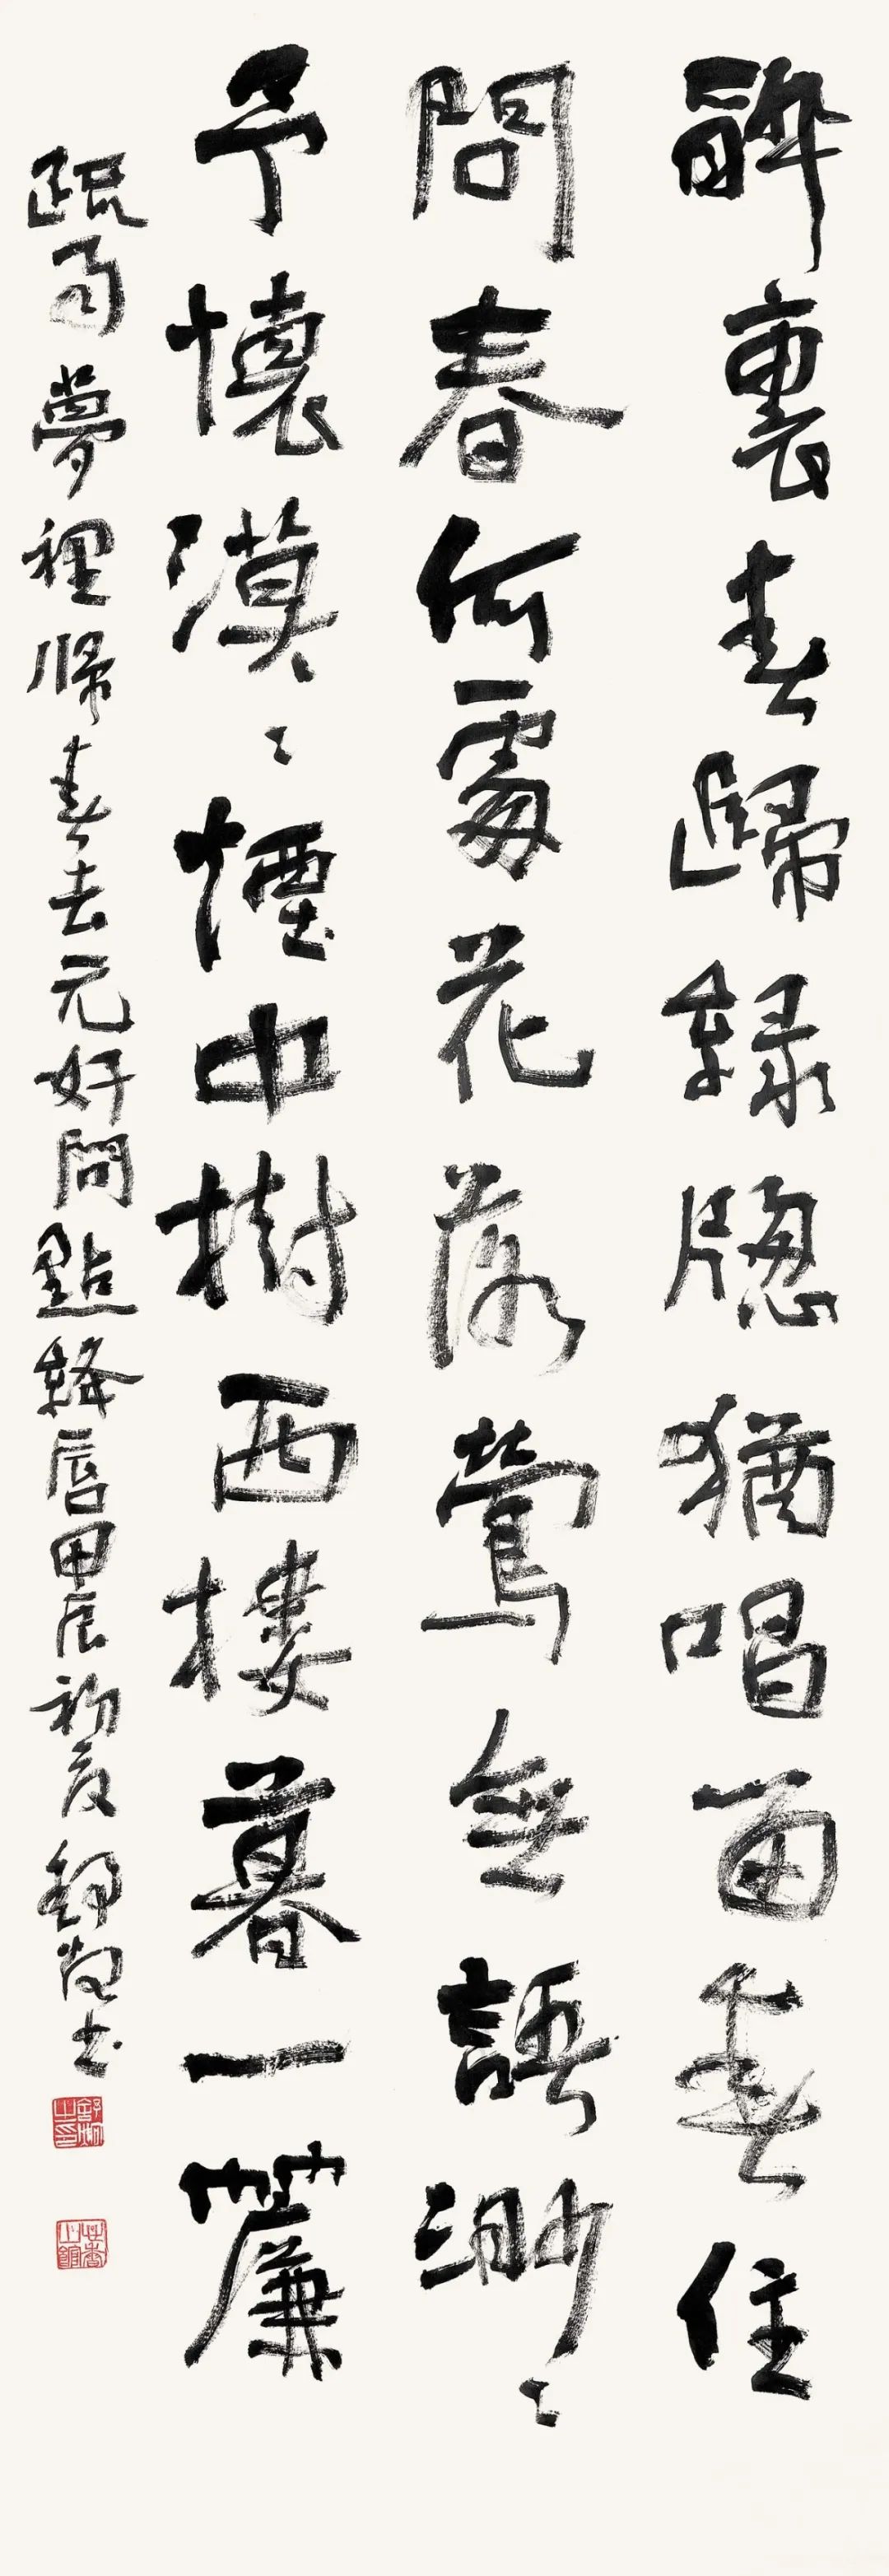 醉裏春歸緑牕猶唱留春住
問春何處花落鶯無語渺〻
予懷漠〻煙中樹西樓暮一簾
疏雨夢裡帰春去元好問點絳唇甲辰初夏舒炯書
舒炯之印